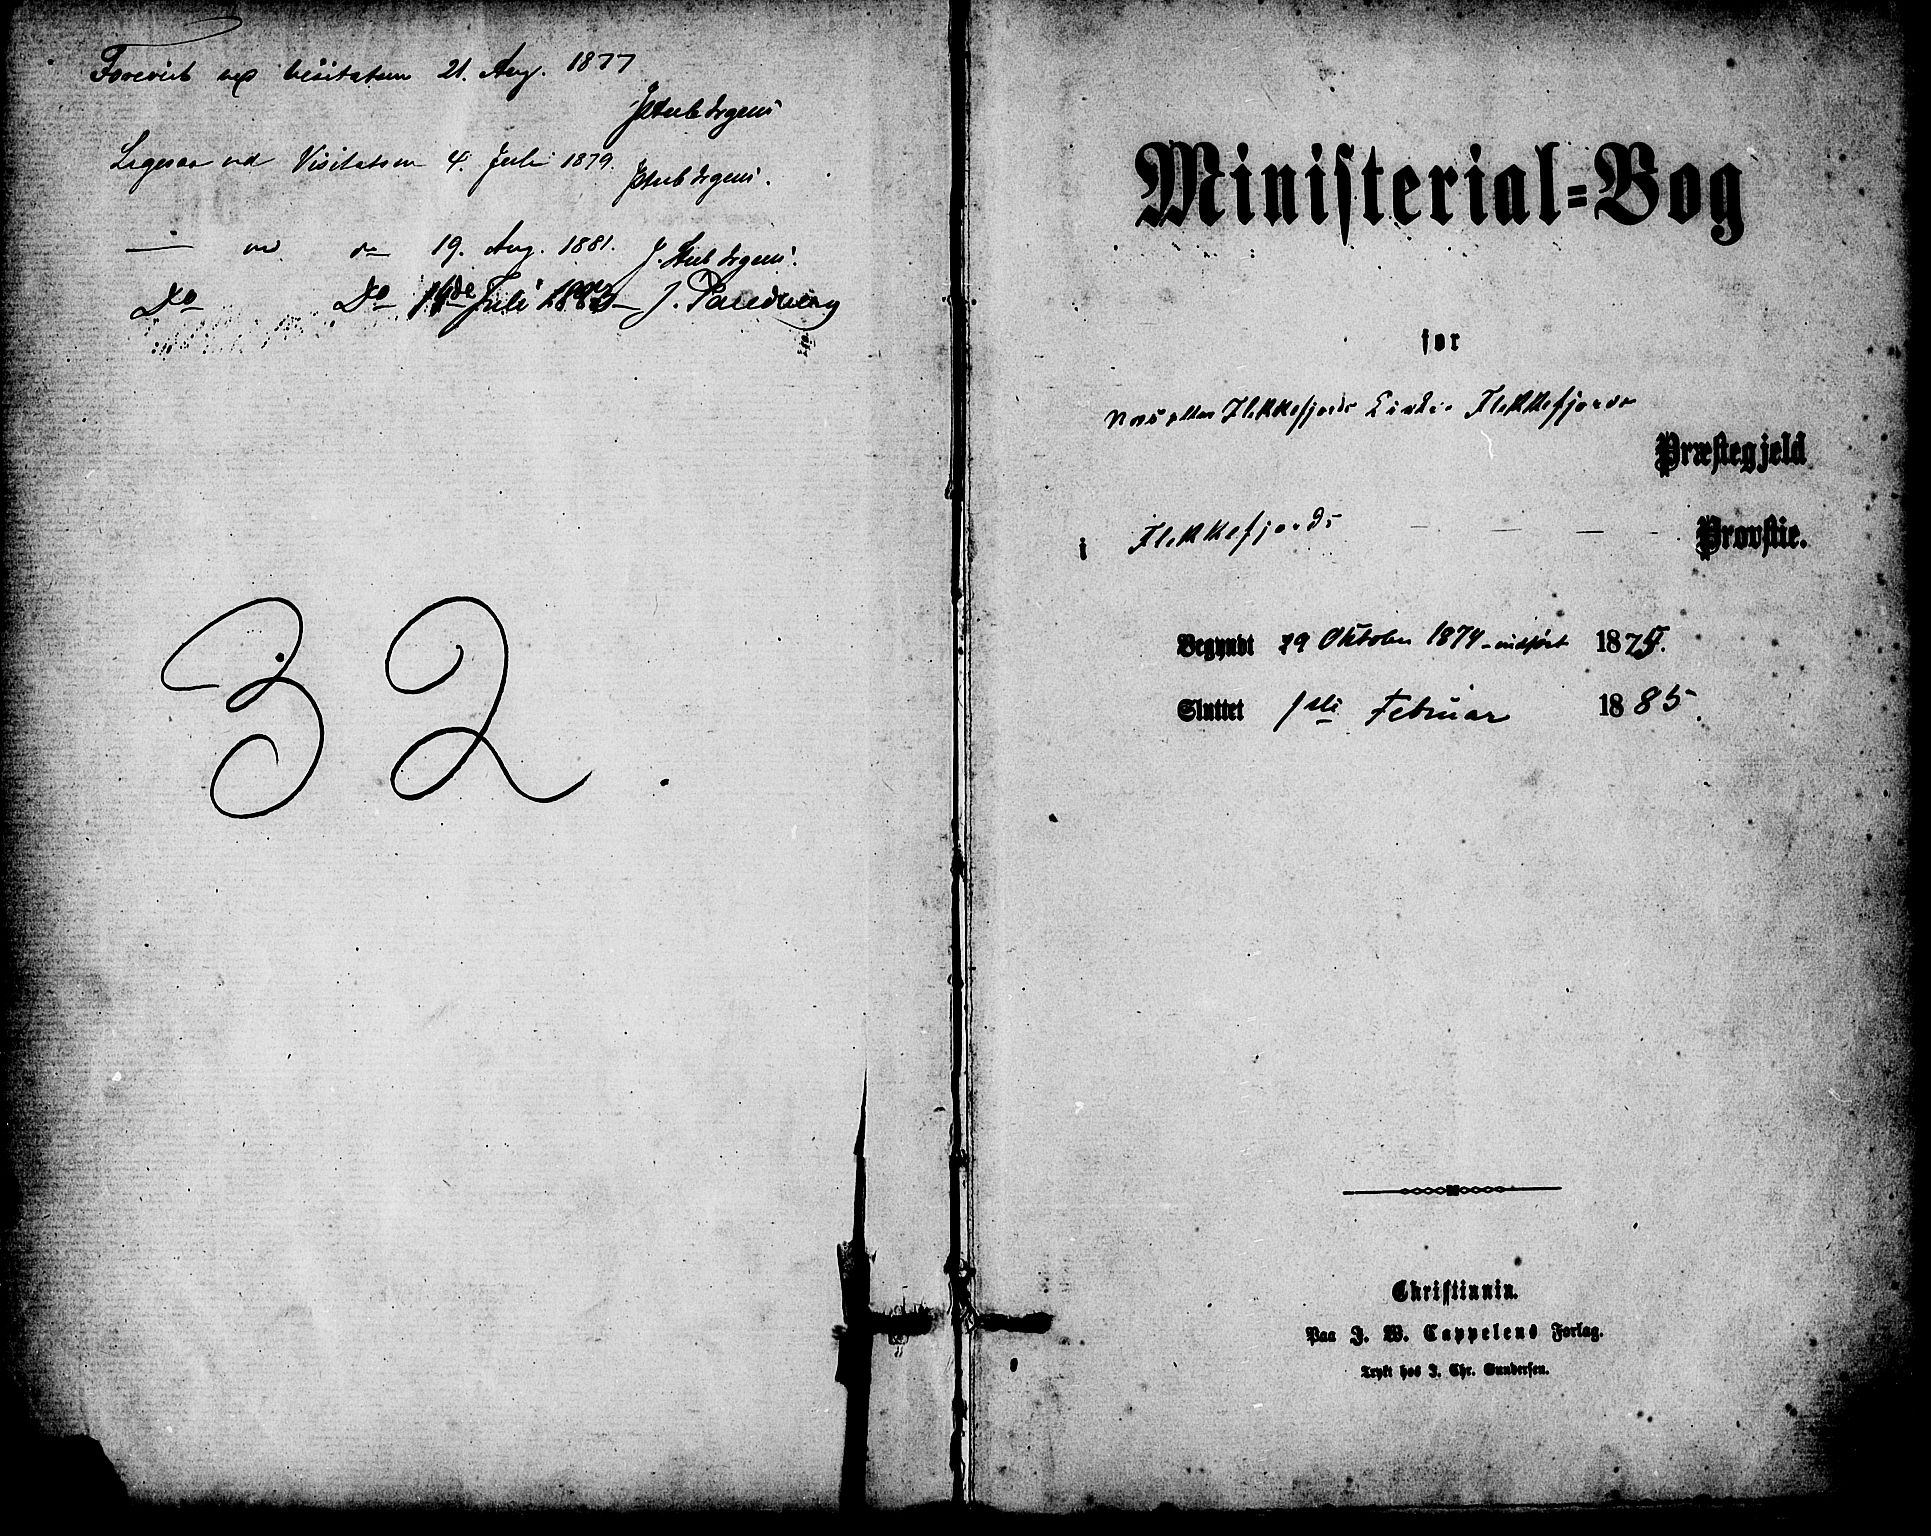 Forevist ved Visitatsen 21. Aug. 1877
J Stub Irgens
Ligesaa ved Visitatsen 4. Juli 1879.
J Stub Irgens.
— ved do 19. Aug. 1881. J. Stub Irgens.
Do Do Juli J.
32.
Ministerial-Bog
for
Flekkefjords Flekkefjords
Præstegjeld
i Flekkefjords Provstie.
Begyndt 29 Oktober 1874 - indført 1875.
Sluttet 1ste Februar 1885.
Christiania.
Paa J. W. Cappelens Forlag.
Trykt hos J. Chr. Gundersen.